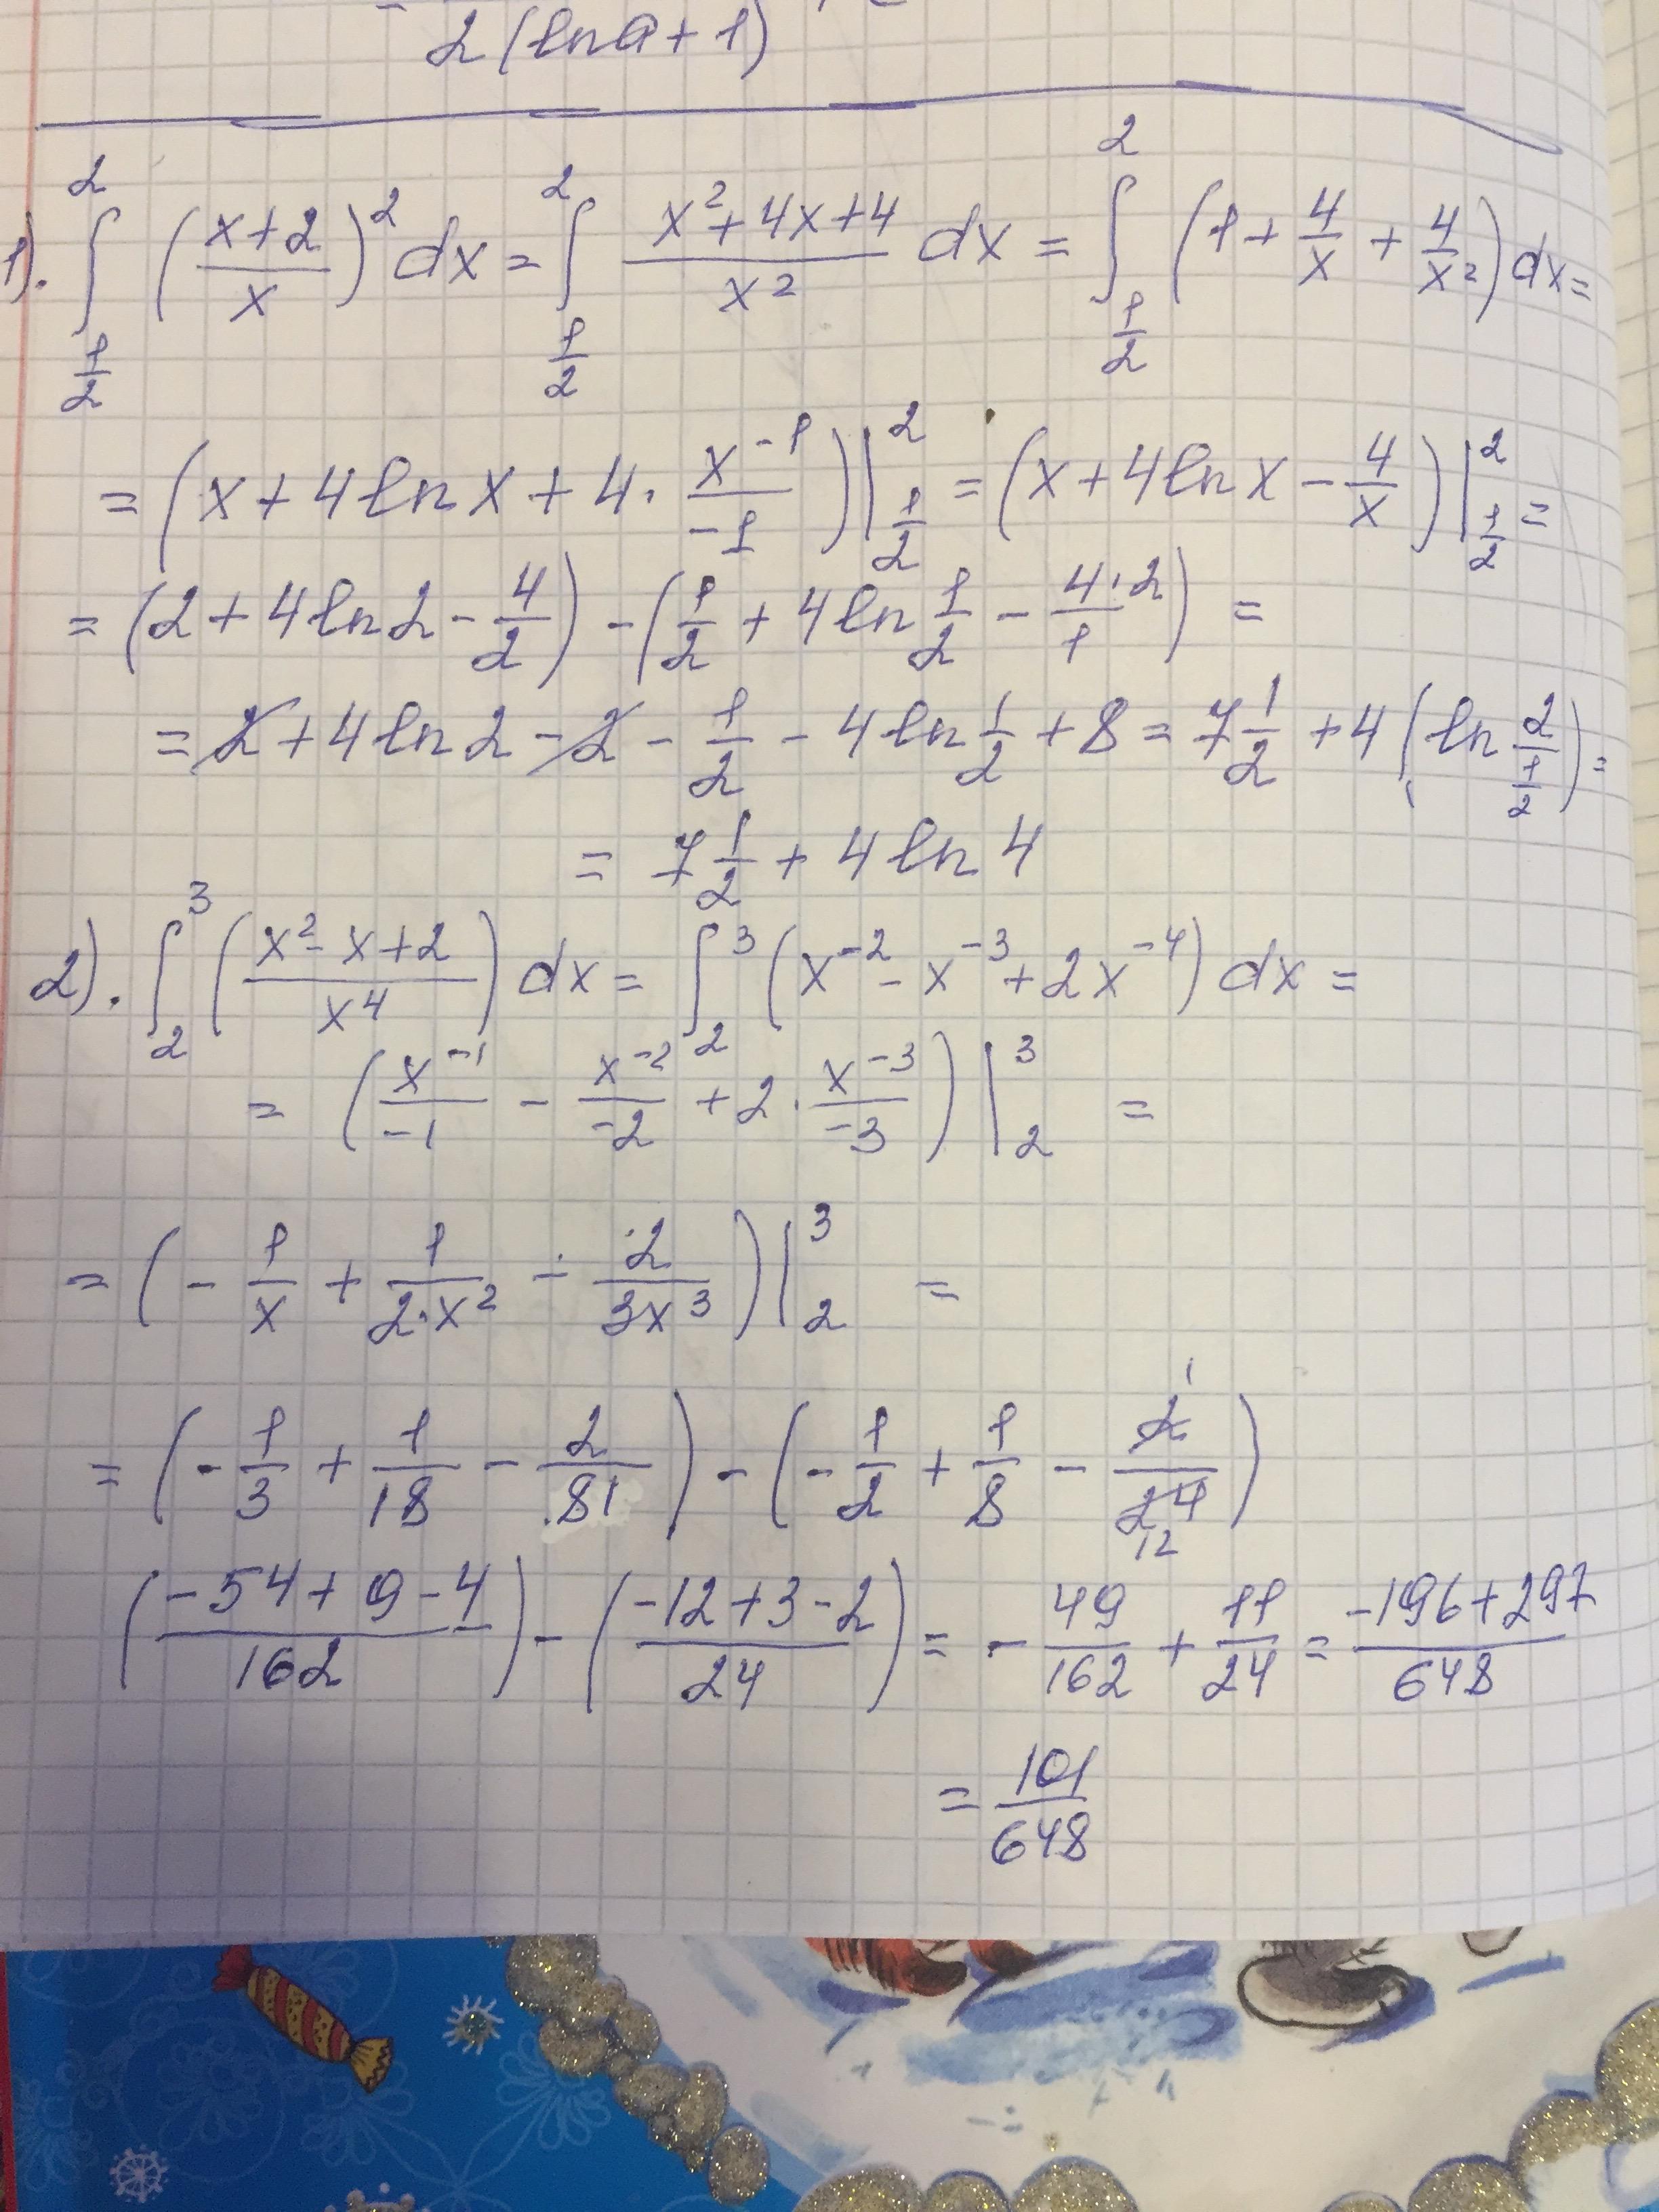 2(ln a + 1)
1). ∫_{1/2}^{2} ((x+2)/x)² dx = ∫_{1/2}^{2} (x²+4x+4)/x² dx = ∫_{1/2}^{2} (1 + 4/x + 4/x²) dx =
= (x + 4 ln x + 4 · x⁻¹/-1) |_{1/2}^{2} = (x + 4 ln x - 4/x) |_{1/2}^{2} =
= (2 + 4 ln 2 - 4/2) - (1/2 + 4 ln 1/2 - 4·2/1) =
= 2 + 4 ln 2 - 2 - 1/2 - 4 ln 1/2 + 8 = 7 1/2 + 4 (ln 2/(1/2)) =
= 7 1/2 + 4 ln 4
2). ∫_{2}^{3} ((x² - x + 2)/x⁴) dx = ∫_{2}^{3} (x⁻² - x⁻³ + 2x⁻⁴) dx =
= (x⁻¹/-1 - x⁻²/-2 + 2 · x⁻³/-3) |_{2}^{3} =
= (- 1/x + 1/(2·x²) - 2/(3x³)) |_{2}^{3} =
= (- 1/3 + 1/18 - 2/81) - (- 1/2 + 1/8 - 2/24) 1 12
((-54 + 9 - 4)/162) - ((-12 + 3 - 2)/24) = - 49/162 + 11/24 = (-196 + 297)/648
= 101/648